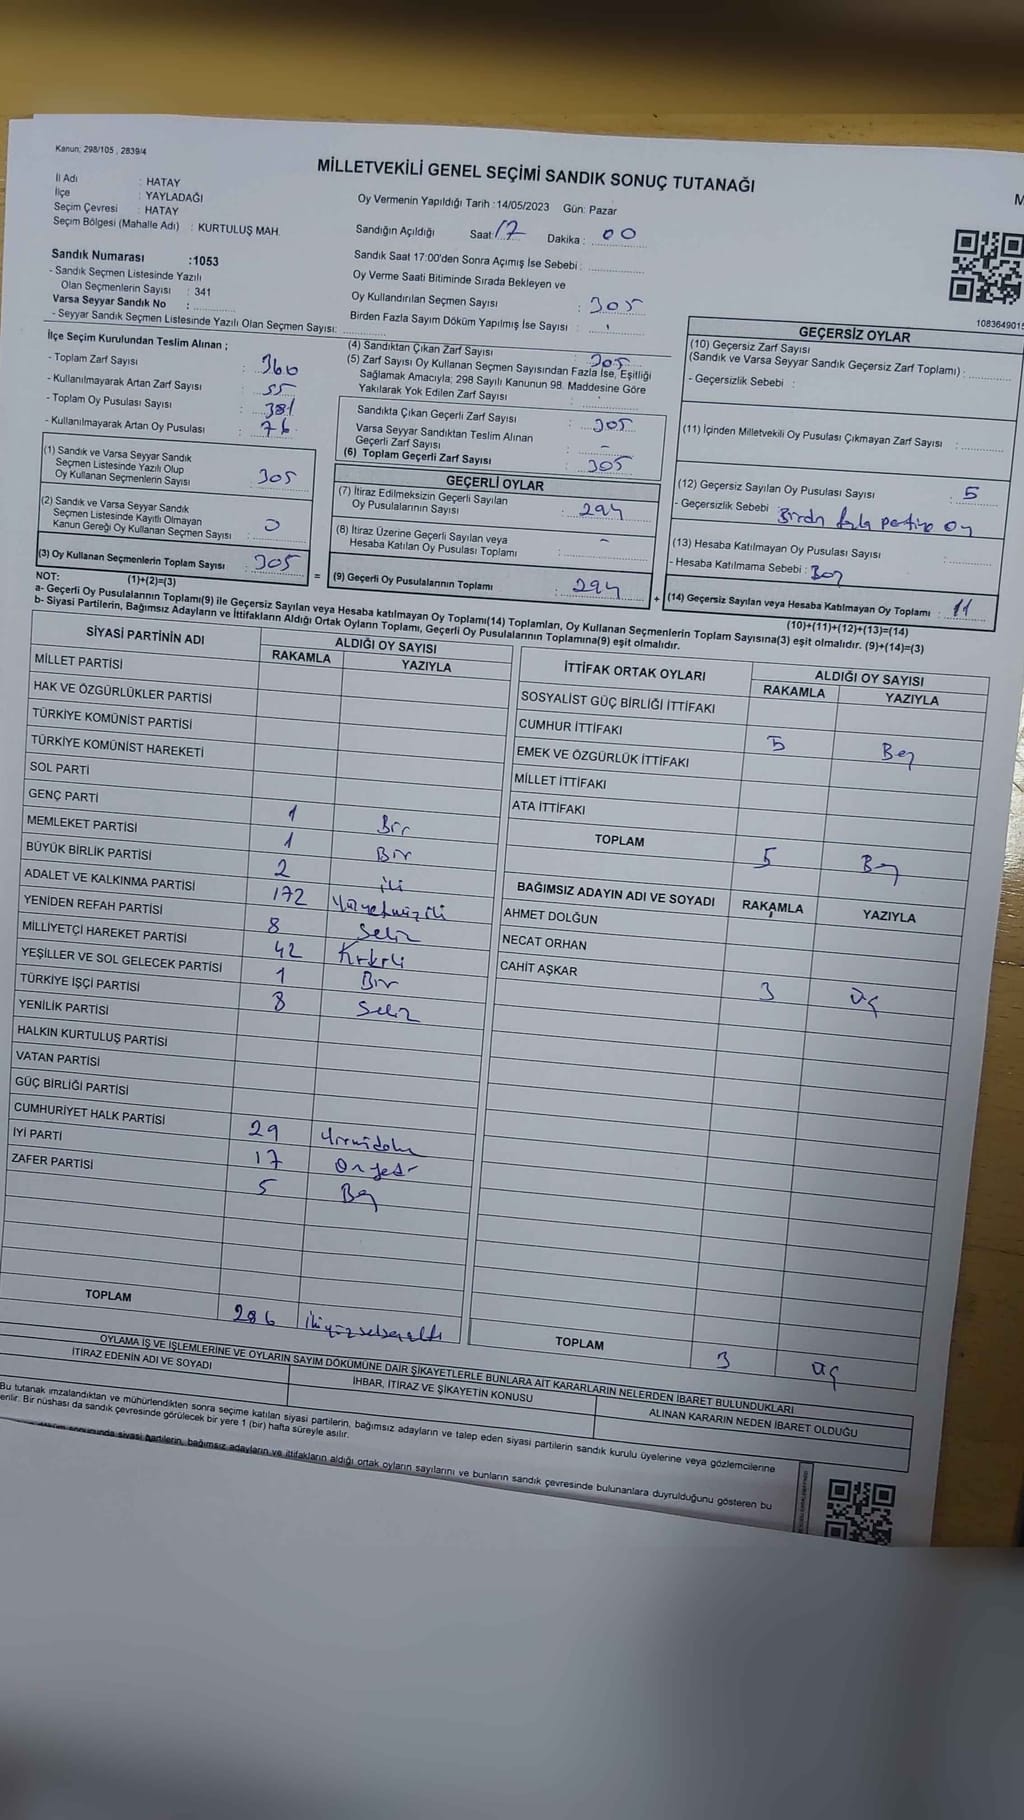 Kanun; 298/105 , 2839/4
MİLLETVEKİLİ GENEL SEÇİMİ SANDIK SONUÇ TUTANAĞI
İl Adı : HATAY
İlçe : YAYLADAĞI
Seçim Çevresi : HATAY
Seçim Bölgesi (Mahalle Adı) : KURTULUŞ MAH.
Oy Vermenin Yapıldığı Tarih :14/05/2023 Gün: Pazar
Sandığın Açıldığı Saat: 17 Dakika : 00
Sandık Saat 17:00'den Sonra Açımış İse Sebebi :
Oy Verme Saati Bitiminde Sırada Bekleyen ve
Oy Kullandırılan Seçmen Sayısı : 305
Birden Fazla Sayım Döküm Yapılmış İse Sayısı :
Sandık Numarası :1053
- Sandık Seçmen Listesinde Yazılı
Olan Seçmenlerin Sayısı : 341
Varsa Seyyar Sandık No :
- Seyyar Sandık Seçmen Listesinde Yazılı Olan Seçmen Sayısı:
İlçe Seçim Kurulundan Teslim Alınan ;
- Toplam Zarf Sayısı : 360
- Kullanılmayarak Artan Zarf Sayısı : 55
- Toplam Oy Pusulası Sayısı : 381
- Kullanılmayarak Artan Oy Pusulası : 76
(1) Sandık ve Varsa Seyyar Sandık
Seçmen Listesinde Yazılı Olup
Oy Kullanan Seçmenlerin Sayısı : 305
(2) Sandık ve Varsa Seyyar Sandık
Seçmen Listesinde Kayıtlı Olmayan
Kanun Gereği Oy Kullanan Seçmen Sayısı : 0
(3) Oy Kullanan Seçmenlerin Toplam Sayısı : 305
(1)+(2)=(3)
(4) Sandıktan Çıkan Zarf Sayısı : 305
(5) Zarf Sayısı Oy Kullanan Seçmen Sayısından Fazla İse, Eşitliği
Sağlamak Amacıyla; 298 Sayılı Kanunun 98. Maddesine Göre
Yakılarak Yok Edilen Zarf Sayısı :
Sandıkta Çıkan Geçerli Zarf Sayısı : 305
Varsa Seyyar Sandıktan Teslim Alınan
Geçerli Zarf Sayısı : -
(6) Toplam Geçerli Zarf Sayısı : 305
GEÇERLİ OYLAR
(7) İtiraz Edilmeksizin Geçerli Sayılan
Oy Pusulalarının Sayısı : 294
(8) İtiraz Üzerine Geçerli Sayılan veya
Hesaba Katılan Oy Pusulası Toplamı : -
= (9) Geçerli Oy Pusulalarının Toplamı : 294
1083649015
GEÇERSİZ OYLAR
(10) Geçersiz Zarf Sayısı
(Sandık ve Varsa Seyyar Sandık Geçersiz Zarf Toplamı) :
- Geçersizlik Sebebi :
(11) İçinden Milletvekili Oy Pusulası Çıkmayan Zarf Sayısı :
(12) Geçersiz Sayılan Oy Pusulası Sayısı : 5
- Geçersizlik Sebebi : Birden fazla partiye oy
(13) Hesaba Katılmayan Oy Pusulası Sayısı :
- Hesaba Katılmama Sebebi :
+ (14) Geçersiz Sayılan veya Hesaba Katılmayan Oy Toplamı : 11
(10)+(11)+(12)+(13)=(14)
NOT:
a- Geçerli Oy Pusulalarının Toplamı(9) ile Geçersiz Sayılan veya Hesaba katılmayan Oy Toplamı(14) Toplamları, Oy Kullanan Seçmenlerin Toplam Sayısına(3) eşit olmalıdır. (9)+(14)=(3)
b- Siyasi Partilerin, Bağımsız Adayların ve İttifakların Aldığı Ortak Oyların Toplamı, Geçerli Oy Pusulalarının Toplamına(9) eşit olmalıdır.
SİYASİ PARTİNİN ADI ALDIĞI OY SAYISI
RAKAMLA YAZIYLA
MİLLET PARTİSİ
HAK VE ÖZGÜRLÜKLER PARTİSİ
TÜRKİYE KOMÜNİST PARTİSİ
TÜRKİYE KOMÜNİST HAREKETİ
SOL PARTİ
GENÇ PARTİ 1 Bir
MEMLEKET PARTİSİ 1 Bir
BÜYÜK BİRLİK PARTİSİ 2 iki
ADALET VE KALKINMA PARTİSİ 172 Yüzyetmişiki
YENİDEN REFAH PARTİSİ 8 Sekiz
MİLLİYETÇİ HAREKET PARTİSİ 42 Kırkiki
YEŞİLLER VE SOL GELECEK PARTİSİ 1 Bir
TÜRKİYE İŞÇİ PARTİSİ 8 Sekiz
YENİLİK PARTİSİ
HALKIN KURTULUŞ PARTİSİ
VATAN PARTİSİ
GÜÇ BİRLİĞİ PARTİSİ
CUMHURİYET HALK PARTİSİ 29 Yirmidokuz
İYİ PARTİ 17 Onyedi
ZAFER PARTİSİ 5 Beş
TOPLAM 286 İkiyüzseksenaltı
İTTİFAK ORTAK OYLARI ALDIĞI OY SAYISI
RAKAMLA YAZIYLA
SOSYALİST GÜÇ BİRLİĞİ İTTİFAKI
CUMHUR İTTİFAKI 5 Beş
EMEK VE ÖZGÜRLÜK İTTİFAKI
MİLLET İTTİFAKI
ATA İTTİFAKI
TOPLAM 5 Beş
BAĞIMSIZ ADAYIN ADI VE SOYADI RAKAMLA YAZIYLA
AHMET DOLĞUN
NECAT ORHAN
CAHİT AŞKAR 3 Üç
TOPLAM 3 Üç
OYLAMA İŞ VE İŞLEMLERİNE VE OYLARIN SAYIM DÖKÜMÜNE DAİR ŞİKAYETLERLE BUNLARA AİT KARARLARIN NELERDEN İBARET BULUNDUKLARI
İTİRAZ EDENİN ADI VE SOYADI İHBAR, İTİRAZ VE ŞİKAYETİN KONUSU ALINAN KARARIN NEDEN İBARET OLDUĞU
Bu tutanak imzalandıktan ve mühürlendikten sonra seçime katılan siyasi partilerin, bağımsız adayların ve talep eden siyasi partilerin sandık kurulu üyelerine veya gözlemcilerine
erilir. Bir nüshası da sandık çevresinde görülecek bir yere 1 (bir) hafta süreyle asılır.
sonucunda siyasi partilerin, bağımsız adayların ve ittifakların aldığı ortak oyların sayılarını ve bunların sandık çevresinde bulunanlara duyrulduğunu gösteren bu